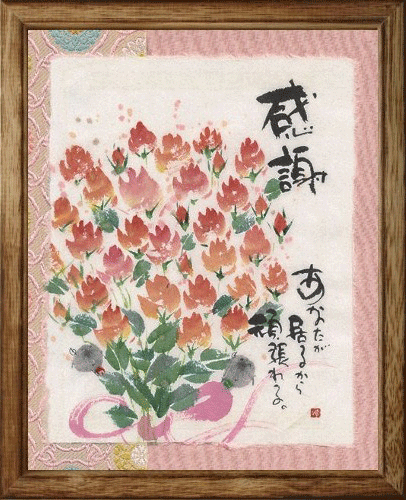 感謝
あなたが
居るから
頑張れる。